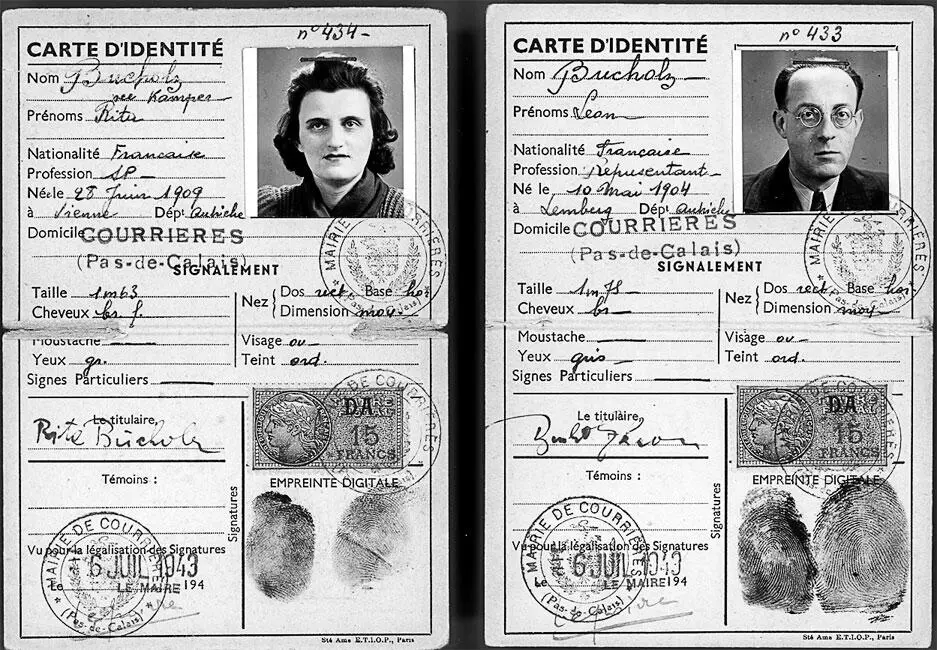 nº 434-
CARTE D'IDENTITÉ
Nom Bucholz
née Kamper
Prénoms Rita
Nationalité Francaise
Profession SP
Né le 28 Juin 1909
à Vienne Dépt Autriche
Domicile COURRIERES
(Pas-de-Calais)
SIGNALEMENT
Taille 1m63
Cheveux br. f.
Nez
Dos rect. Base hor
Dimension moy.
Moustache
Yeux gr.
Visage ov
Teint ord.
Signes Particuliers
Le titulaire,
Rita Bucholz
Témoins :
Signatures
Vu pour la légalisation des Signatures
6 JUIL 1943
Le LE MAIRE 194
MAIRIE DE COURRIÈRES
(Pas-de-Calais)
DA
15
FRANCS
EMPREINTE DIGITALE
Sté Ame E.T.I.O.P., Paris
nº 433
CARTE D'IDENTITÉ
Nom Bucholz
Prénoms Leon
Nationalité Française
Profession Représentant
Né le 10 Mai 1904
à Lemberg Dépt Autriche
Domicile COURRIERES
(Pas-de-Calais)
SIGNALEMENT
Taille 1m78
Cheveux br
Nez
Dos rect. Base hor
Dimension moy
Moustache
Yeux gris
Visage ov
Teint ord.
Signes Particuliers
Le titulaire,
Témoins :
Signatures
Vu pour la légalisation des Signatures
6 JUIL 1943
Le LE MAIRE 194
MAIRIE DE COURRIÈRES
(Pas-de-Calais)
DA
15
FRANCS
EMPREINTE DIGITALE
Sté Ame E.T.I.O.P., Paris